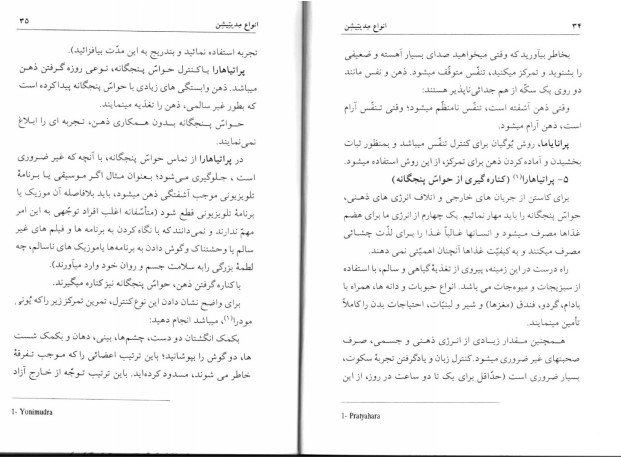 ۳۴
انواع مِدیتیشِن
بخاطر بیاورید که وقتی میخواهید صدای بسیار آهسته و ضعیفی
را بشنوید و تمرکز میکنید، تنفّس متوقّف میشود. ذهن و نفس مانند
دو روی یک سکّه از هم جدائی‌ناپذیر هستند:
وقتی ذهن آشفته است، تنفّس نامنظّم میشود؛ وقتی تنفّس آرام
است، ذهن آرام میشود.
پرانایاما، روش یُوگیان برای کنترل تنفّس میباشد و بمنظور ثبات
بخشیدن و آماده کردن ذهن برای تمرکز، از این روش استفاده میشود.
۵- پراتیاهارا(۱) (کناره گیری از حواسّ پنجگانه)
برای کاستن از جریان های خارجی و اتلاف انرژی های ذهنی،
حواسّ پنجگانه را باید مهار نمائیم. یک چهارم از انرژی ما برای هضم
غذاها مصرف میشود و انسانها غالباً غذا را برای لذّت چشائی
مصرف میکنند و به‌کیفیّت غذاها آنچنان اهمیّتی نمی دهند.
راه درست در این زمینه، پیروی از تغذیهٔ گیاهی و سالم، با استفاده
از سبزیجات و میوه‌جات می باشد. انواع حبوبات و دانه ها، همراه با
بادام، گردو، فندق (مغزها) و شیر و لبنیّات، احتیاجات بدن را کاملاً
تأمین مینمایند.
همچنین مقدار زیادی از انرژی ذهنی و جسمی، صرف
صحبتهای غیر ضروری میشود. کنترل زبان و یادگرفتن تجربهٔ سکوت،
بسیار ضروری است (حدّاقل برای یک تا دو ساعت در روز، از این
1- Pratyahara
انواع مِدیتیشِن
۳۵
تجربه استفاده نمائید و بتدریج به این مدّت بیافزائید).
پراتیاهارا یا کنترل حواسّ پنجگانه، نوعی روزه گرفتن ذهن
میباشد. ذهن وابستگی های زیادی با حواسّ پنجگانه پیدا کرده است
که بطور غیر سالمی، ذهن را تغذیه مینمایند.
حواسّ پنجگانه بدون همکاری ذهن، تجربه ای را ابلاغ
نمی‌نمایند.
در پراتیاهارا از تماس حواسّ پنجگانه، با آنچه که غیر ضروری
است ، جلوگیری می‌شود؛ بعنوان مثال اگر موسیقی یا برنامهٔ
تلویزیونی موجب آشفتگی ذهن میشود، باید بلافاصله آن موزیک یا
برنامهٔ تلویزیونی قطع شود (متأسّفانه اغلب افراد توجّهی به این امر
مهمّ ندارند و نمی‌دانند که با نگاه کردن به برنامه ها و فیلم های غیر
سالم یا وحشتناک و گوش دادن به برنامه‌ها یاموزیک های ناسالم، چه
لطمهٔ بزرگی را به سلامت جسم و روان خود وارد میآورند).
با کناره گرفتن ذهن، حواسّ پنجگانه نیز کناره میگیرند.
برای واضح نشان دادن این نوع کنترل، تمرین تمرکز زیر را که یُونی
مودرا(۱)، میباشد انجام دهید:
بکمک انگشتان دو دست، چشم‌ها، بینی، دهان و بکمک شست
ها، دو گوش را بپوشانید؛ باین ترتیب اعضائی را که موجب تفرقهٔ
خاطر می شوند، مسدود کرده‌اید. باین ترتیب توجّه از خارج آزاد
1- Yonimudra